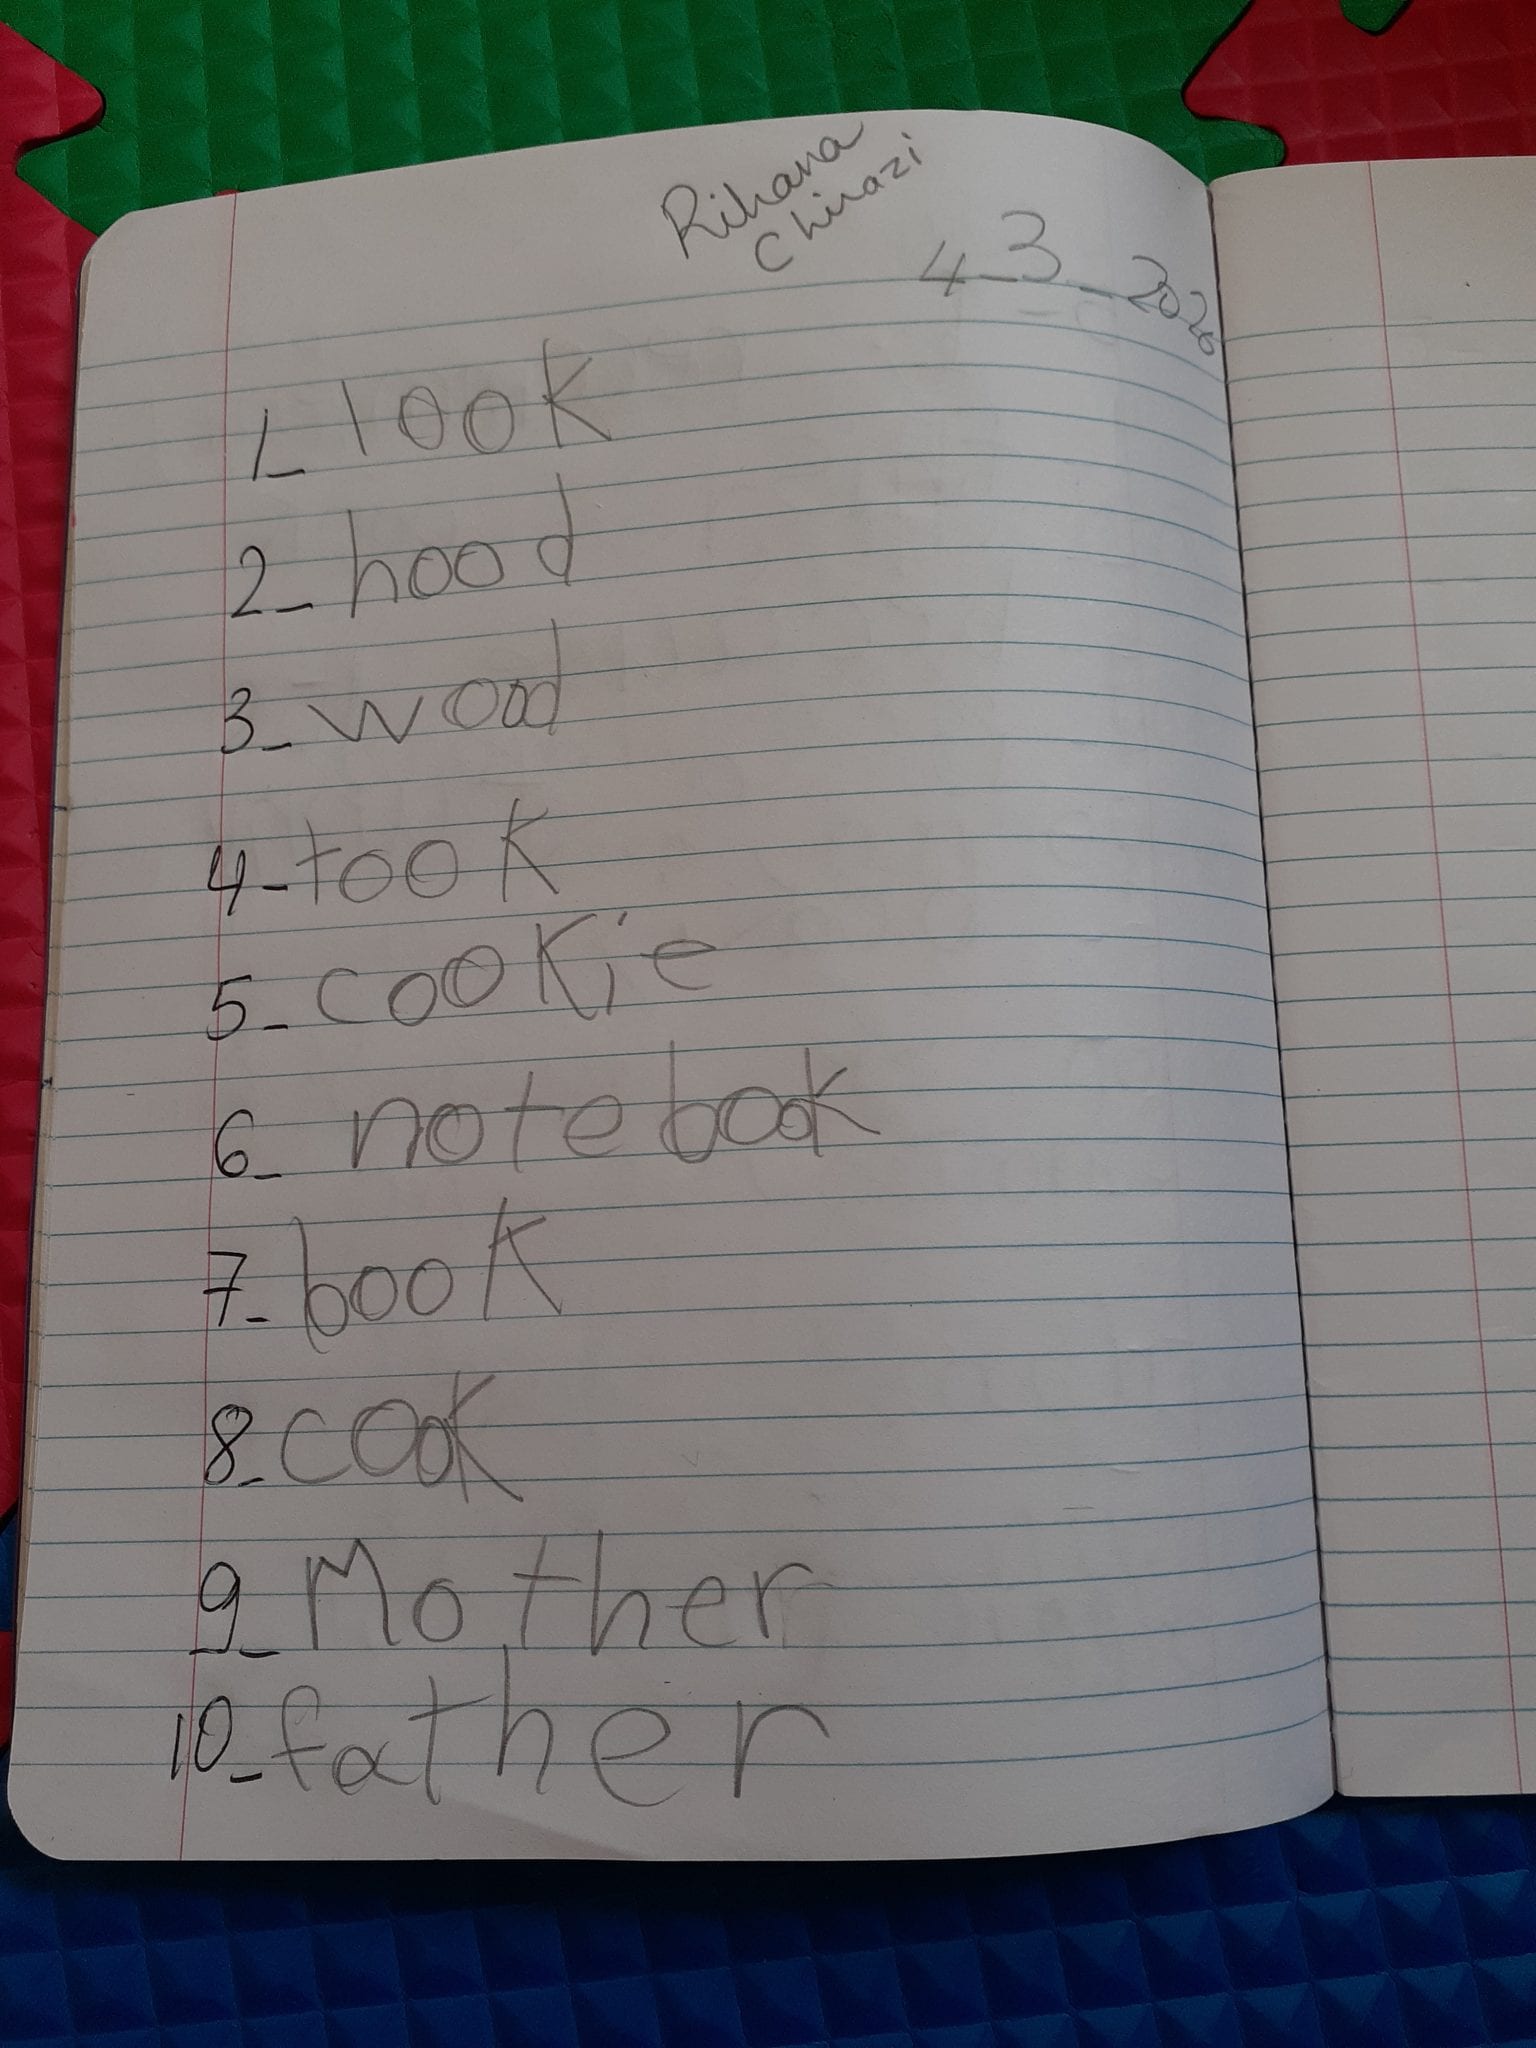 Rihana
Chirazi
4-3-2020
1- look
2- hood
3- wood
4- took
5- cookie
6- notebook
7- book
8- cook
9- Mother
10- father